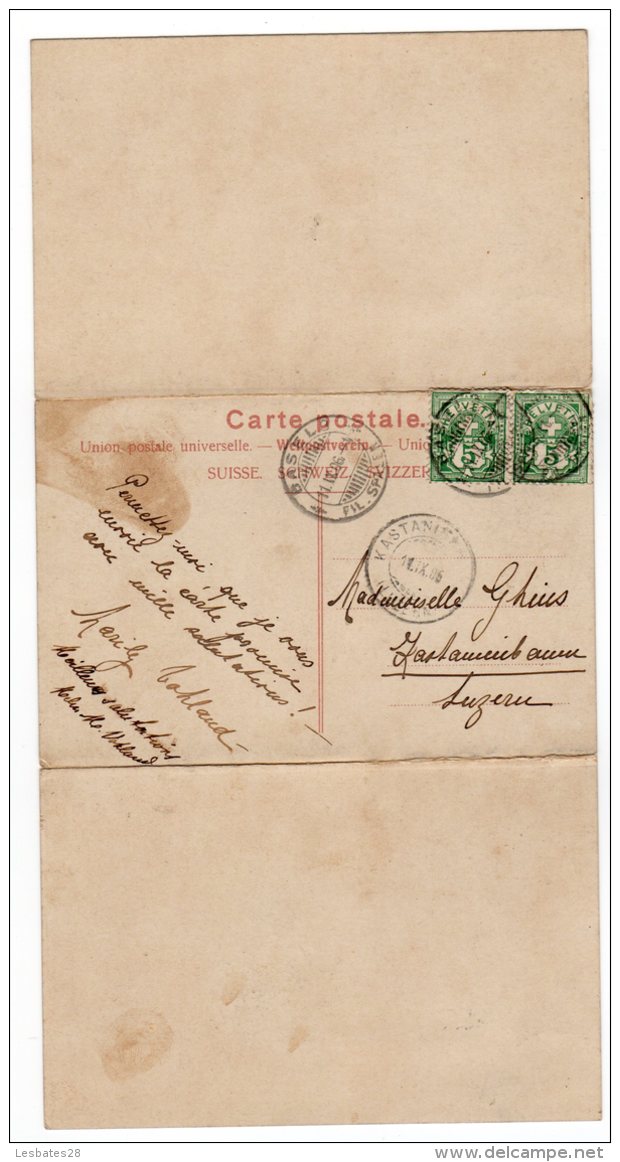 Carte postale.
Union postale universelle. — Weltpostverein. — Uni
SUISSE. SCHWEIZ. SVIZZER
HELVETIA
5
HELVETIA
5
11.IX.06
FIL. SP
KASTANI
11.IX.06
Permettez-moi, que je vous
envoie la carte promise
avec mille salutations!
Meilleures salutations
Mademoiselle
Kastanienbaum
Luzern
Lesbates28
delcampe.net